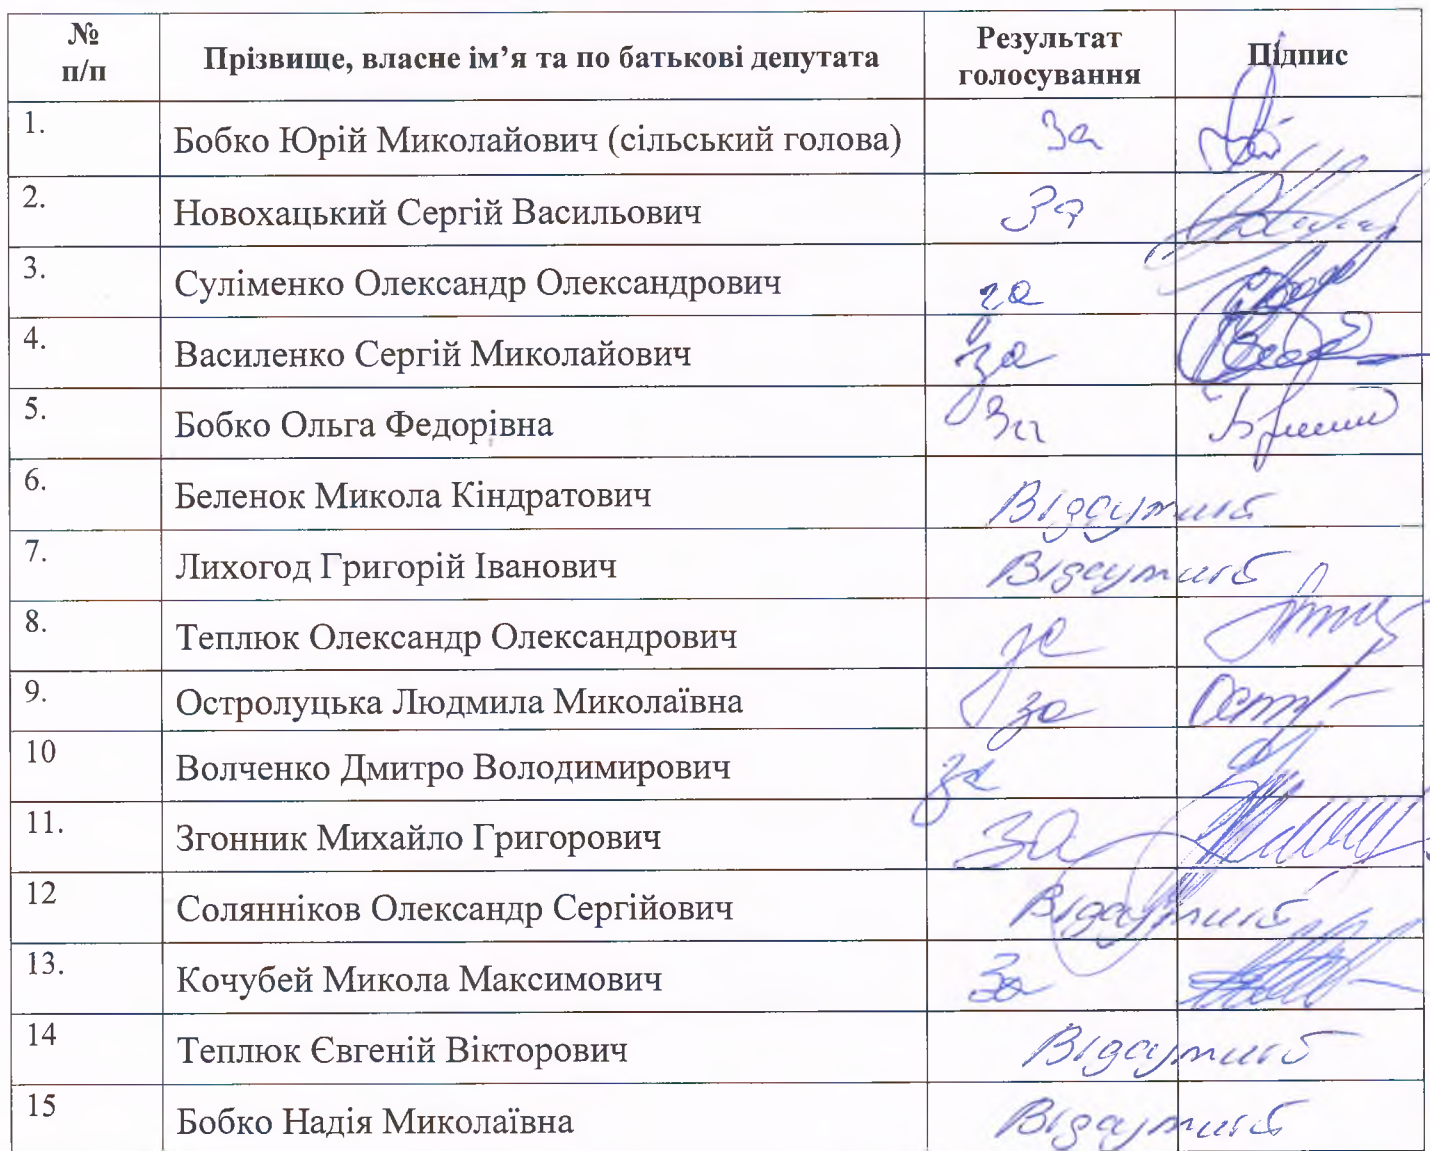 № п/п Прізвище, власне ім’я та по батькові депутата Результат голосування Підпис
1. Бобко Юрій Миколайович (сільський голова) За
2. Новохацький Сергій Васильович За
3. Суліменко Олександр Олександрович за
4. Василенко Сергій Миколайович за
5. Бобко Ольга Федорівна За
6. Беленок Микола Кіндратович Відсутній
7. Лихогод Григорій Іванович Відсутній
8. Теплюк Олександр Олександрович за
9. Остролуцька Людмила Миколаївна за
10 Волченко Дмитро Володимирович за
11. Згонник Михайло Григорович За
12 Солянніков Олександр Сергійович Відсутній
13. Кочубей Микола Максимович За
14 Теплюк Євгеній Вікторович Відсутній
15 Бобко Надія Миколаївна Відсутній